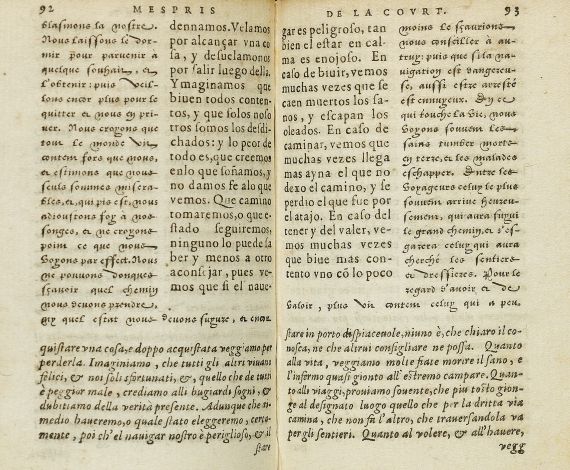 92 MESPRIS
blasmons la nostre.
Nous laissons le dor-
mir pour parvenir à
quelque souhait, et
l'obtenir: puis veil-
lons encor plus pour le
quitter et nous en pri-
ver. Nous croyons que
tout le monde vit
content fors que nous,
et estimons que nous
seuls sommes misera-
bles, et, qui pis est, nous
adioustons foy à nos
songes, et ne croyons
point ce que nous
voyons par effect. Nous
ne pouvons donques
sçavoir quel chemin
nous devons prendre,
ny quel estat nous devons suyure, et encor
dennamos. Velamos
por alcançar vna co
sa, y desuelamonos
por salir luego della.
Ymaginamos que
biuen todos conten-
tos, y que solos noso
tros somos los desdi-
chados: y lo peor de
todo es, que creemos
enlo que soñamos, y
no damos fe alo que
vemos. Que camino
tomaremos, o que e-
stado seguiremos,
ninguno lo puede sa
ber y menos a otro
aconsejar, pues ve-
mos que si el naue-
quistare vna cosa, e doppo acquistata veggiamo per
perderla. Imaginiamo, che tutti gli altri viuano
felici, & noi soli sfortunati, &, quello che de tutti
è peggior male, crediamo alli bugiardi sogni, &
dubitiamo della verità presente. Adunque che ri-
medio haueremo, o quale stato eleggeremo, certa-
mente, poi ch'el nauigar nostro è periglioso, & il
stare
DE LA COVRT. 93
gar es peligroso, tan
bien el estar en cal-
ma es enojoso. En
caso de biuir, vemos
muchas vezes que se
caen muertos los sa-
nos, y escapan los
oleados. En caso de
caminar, vemos que
muchas vezes llega
mas ayna el que no
dexo el camino, y se
perdio el que fue por
el atajo. En caso del
tener y del valer, ve-
mos muchas vezes
que biue mas con-
tento vno cõ lo poco
moins le sçaurions
nous conseiller à au-
truy: puis que si la na-
uigation est dangereu-
se, aussi estre arresté
est ennuyeux. En ce
qui touche la vie, nous
voyons souvent les
sains tumber morts
en terre, et les malades
eschapper. Entre les
voyageurs celuy le plus
souvent arrive heureu-
sement, qui aura suyui
le grand chemin, et s'es-
garera celuy qui aura
cherché les sentiers
et dressieres. Pour le
regard d'avoir et de
valoir, plus vit content celuy qui a peu,
stare in porto dispiaceuole, niuno è, che chiaro il co-
nosca, ne che altrui consigliare ne possa. Quanto
alla vita, veggiamo molte fiate morire il sano, e
l'infermo quasi gionto all'estremo campare. Quan-
to alli viaggi, prouiamo souente, che piu tosto gion-
ge al designato luogo quello che per la dritta via
camina, che non fa l'altro, che trauersandola va
per gli sentieri. Quanto al volere, & all'hauere,
vegg